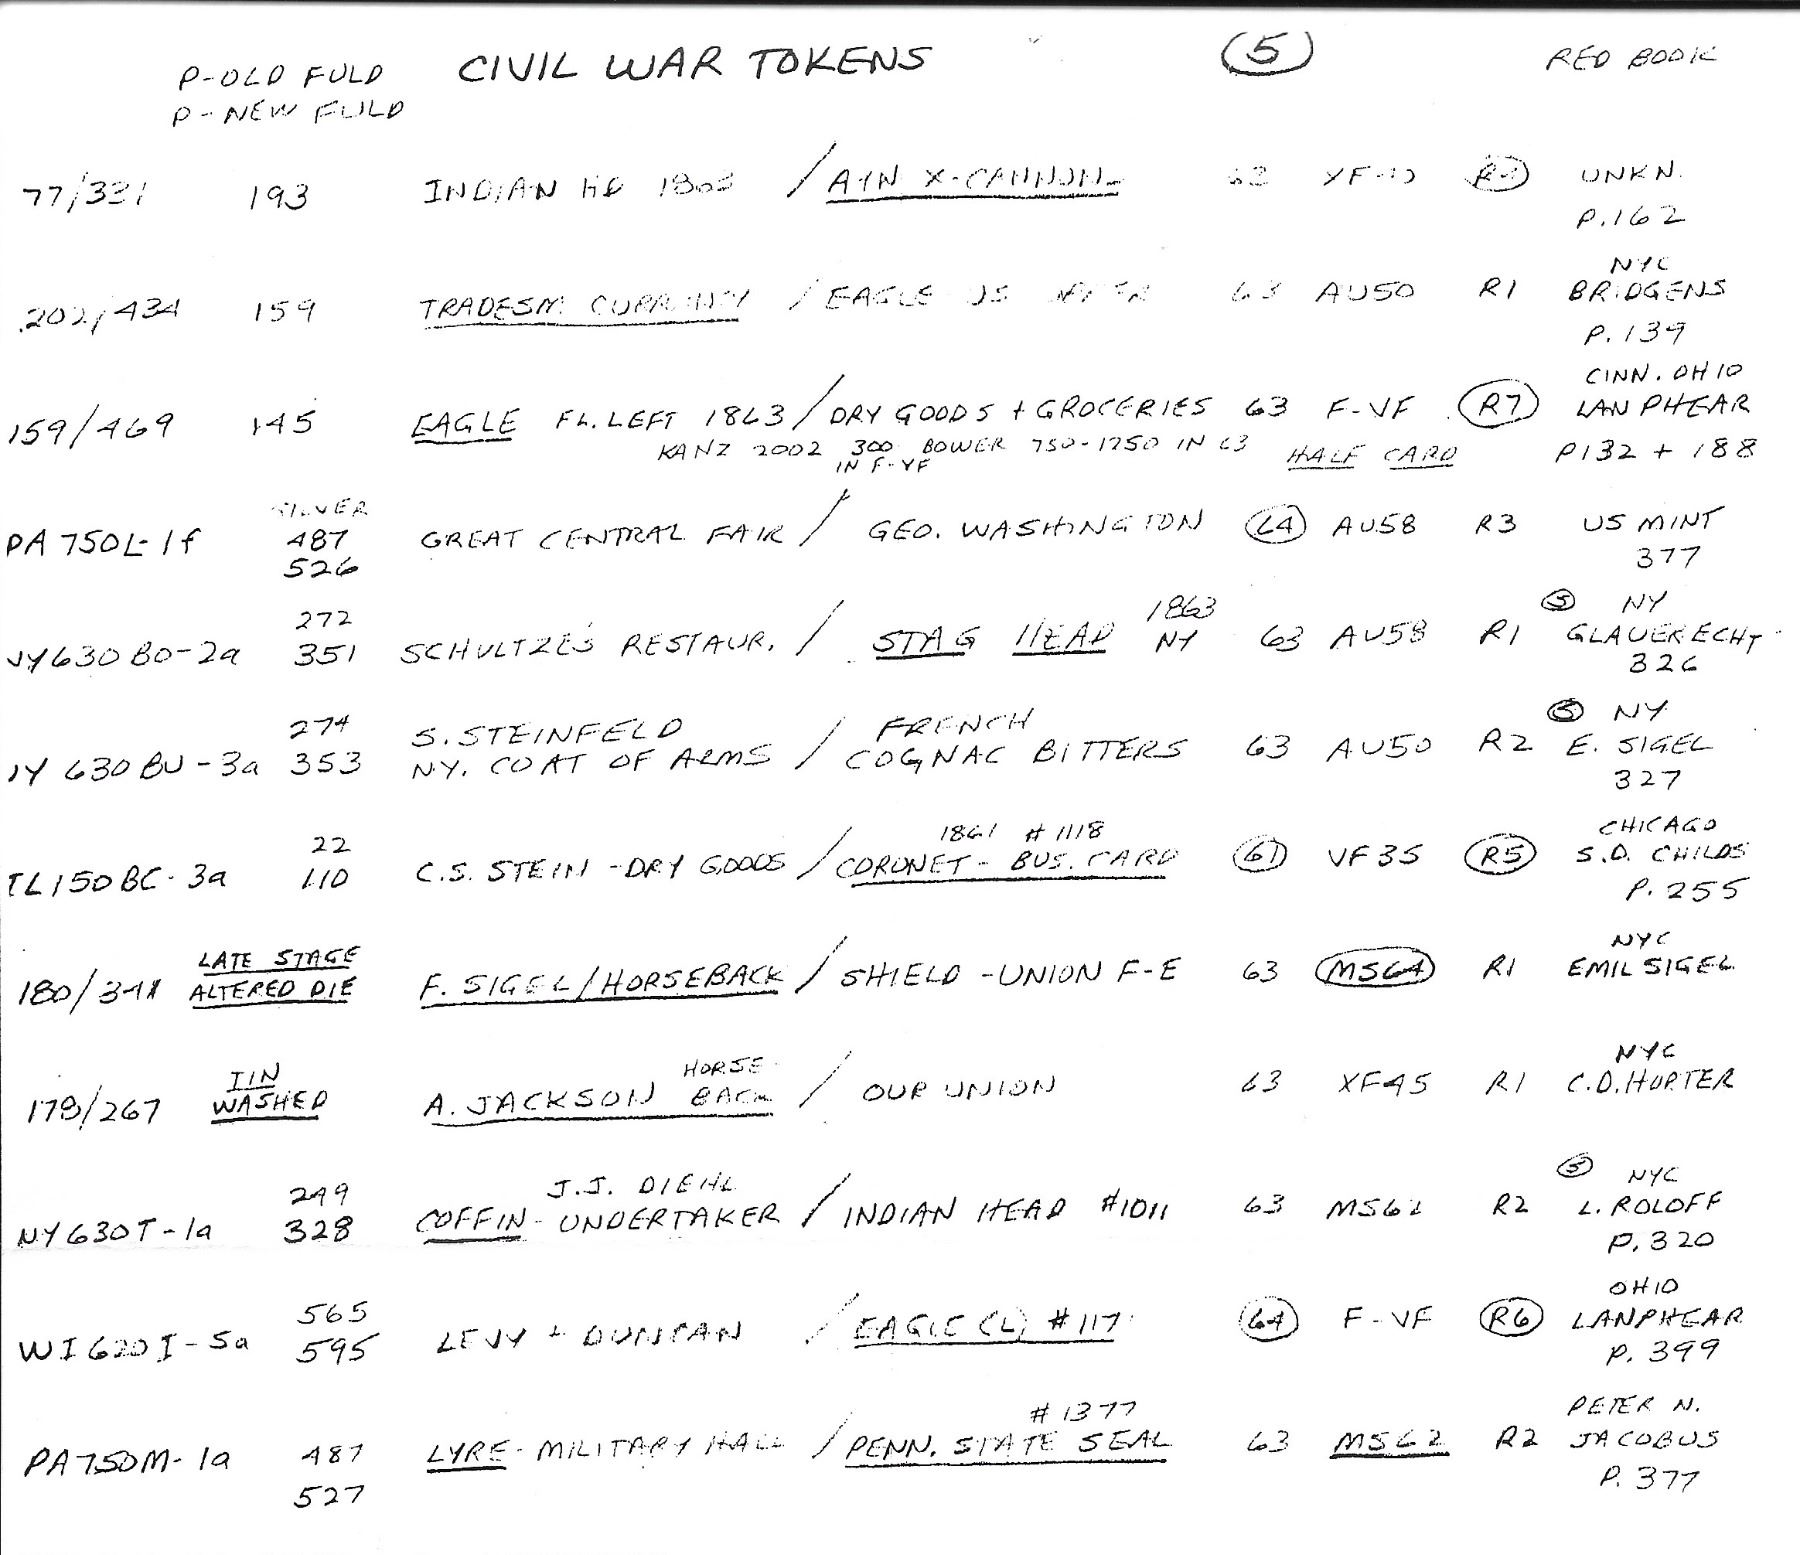 P-OLD FULD CIVIL WAR TOKENS 5 RED BOOK
P-NEW FULD
77/331 193 INDIAN HD 1863 / A+N X-CANNON 63 XF- UNKN.
P.162
NYC
202/434 159 TRADESM. CURRENCY / EAGLE US 63 AU50 R1 BRIDGENS
P.139
CINN. OHIO
159/469 145 EAGLE FL. LEFT 1863 / DRY GOODS + GROCERIES 63 F-VF R7 LANPHEAR
KANZ 2002 300 BOWER 750-1250 IN 63 HALF CARD P132 + 188
IN F-VF
SILVER
PA 750L-1f 487 GREAT CENTRAL FAIR / GEO. WASHINGTON 64 AU58 R3 US MINT
526 377
272 1863 5 NY
NY 630 BO-2a 351 SCHULTZE'S RESTAUR. / STAG HEAD NY 63 AU58 R1 GLAUBRECHT
326
274 S. STEINFELD / FRENCH 5 NY
NY 630 BU-3a 353 N.Y. COAT OF ARMS COGNAC BITTERS 63 AU50 R2 E. SIGEL
327
22 1861 #1118 CHICAGO
IL150BC-3a 110 C.S. STEIN - DRY GOODS / CORONET - BUS. CARD 61 VF35 R5 S.D. CHILDS
P. 255
LATE STAGE NYC
180/341 ALTERED DIE F. SIGEL/HORSEBACK / SHIELD - UNION F-E 63 MS64 R1 EMIL SIGEL
TIN HORSE NYC
178/267 WASHED A. JACKSON BACK / OUR UNION 63 XF45 R1 C.D. HORTER
249 J.J. DIEHL 5 NYC
NY630T-1a 328 COFFIN - UNDERTAKER / INDIAN HEAD #1011 63 MS62 R2 L. ROLOFF
P. 320
565 OHIO
WI620I-5a 595 LEVY + DUNCAN / EAGLE (L) #117 64 F-VF R6 LANPHEAR
P. 399
#1377 PETER N.
PA750M-1a 487 LYRE - MILITARY HALL / PENN. STATE SEAL 63 MS62 R2 JACOBUS
527 P. 377